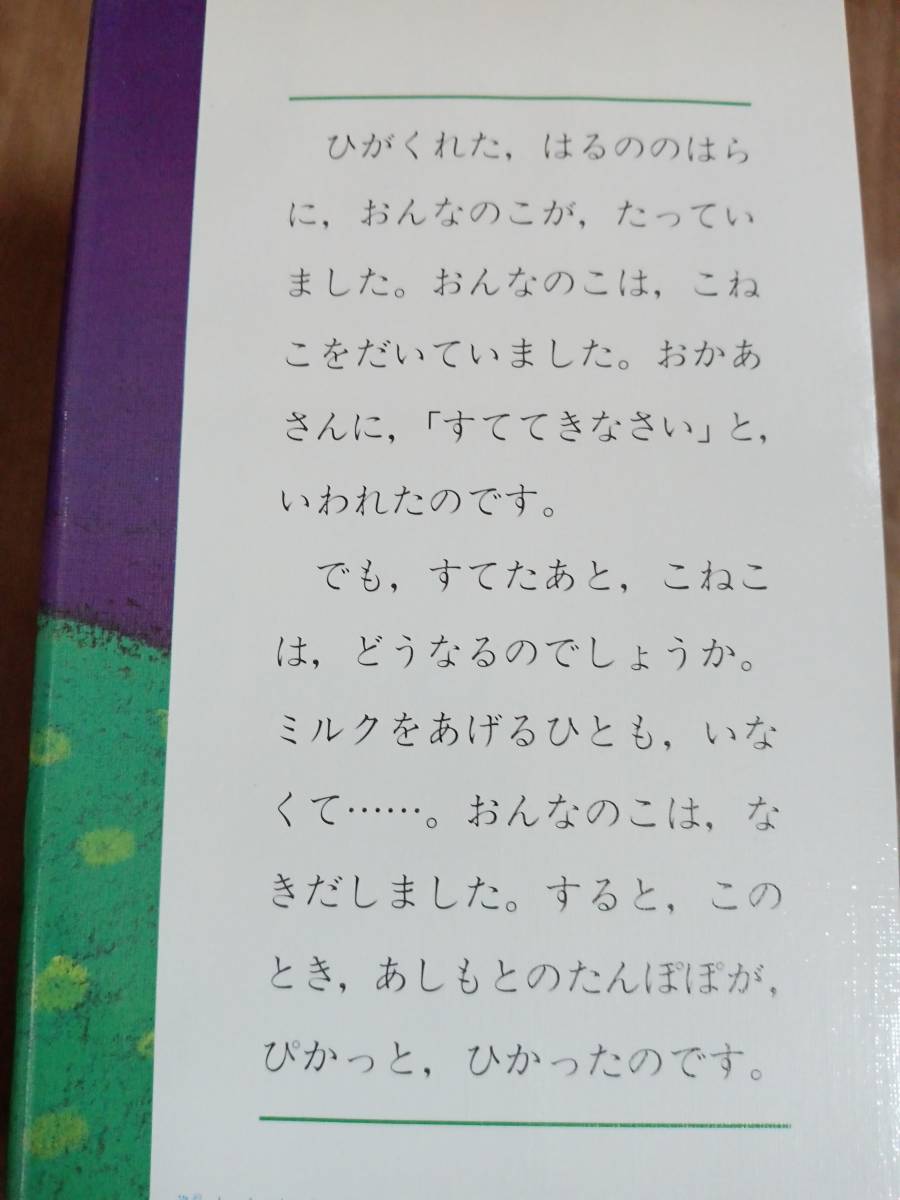 ひがくれた，はるののはら
に，おんなのこが，たってい
ました。おんなのこは，こね
こをだいていました。おかあ
さんに，「すててきなさい」と，
いわれたのです。
でも，すてたあと，こねこ
は，どうなるのでしょうか。
ミルクをあげるひとも，いな
くて……。おんなのこは，な
きだしました。すると，この
とき，あしもとのたんぽぽが，
ぴかっと，ひかったのです。